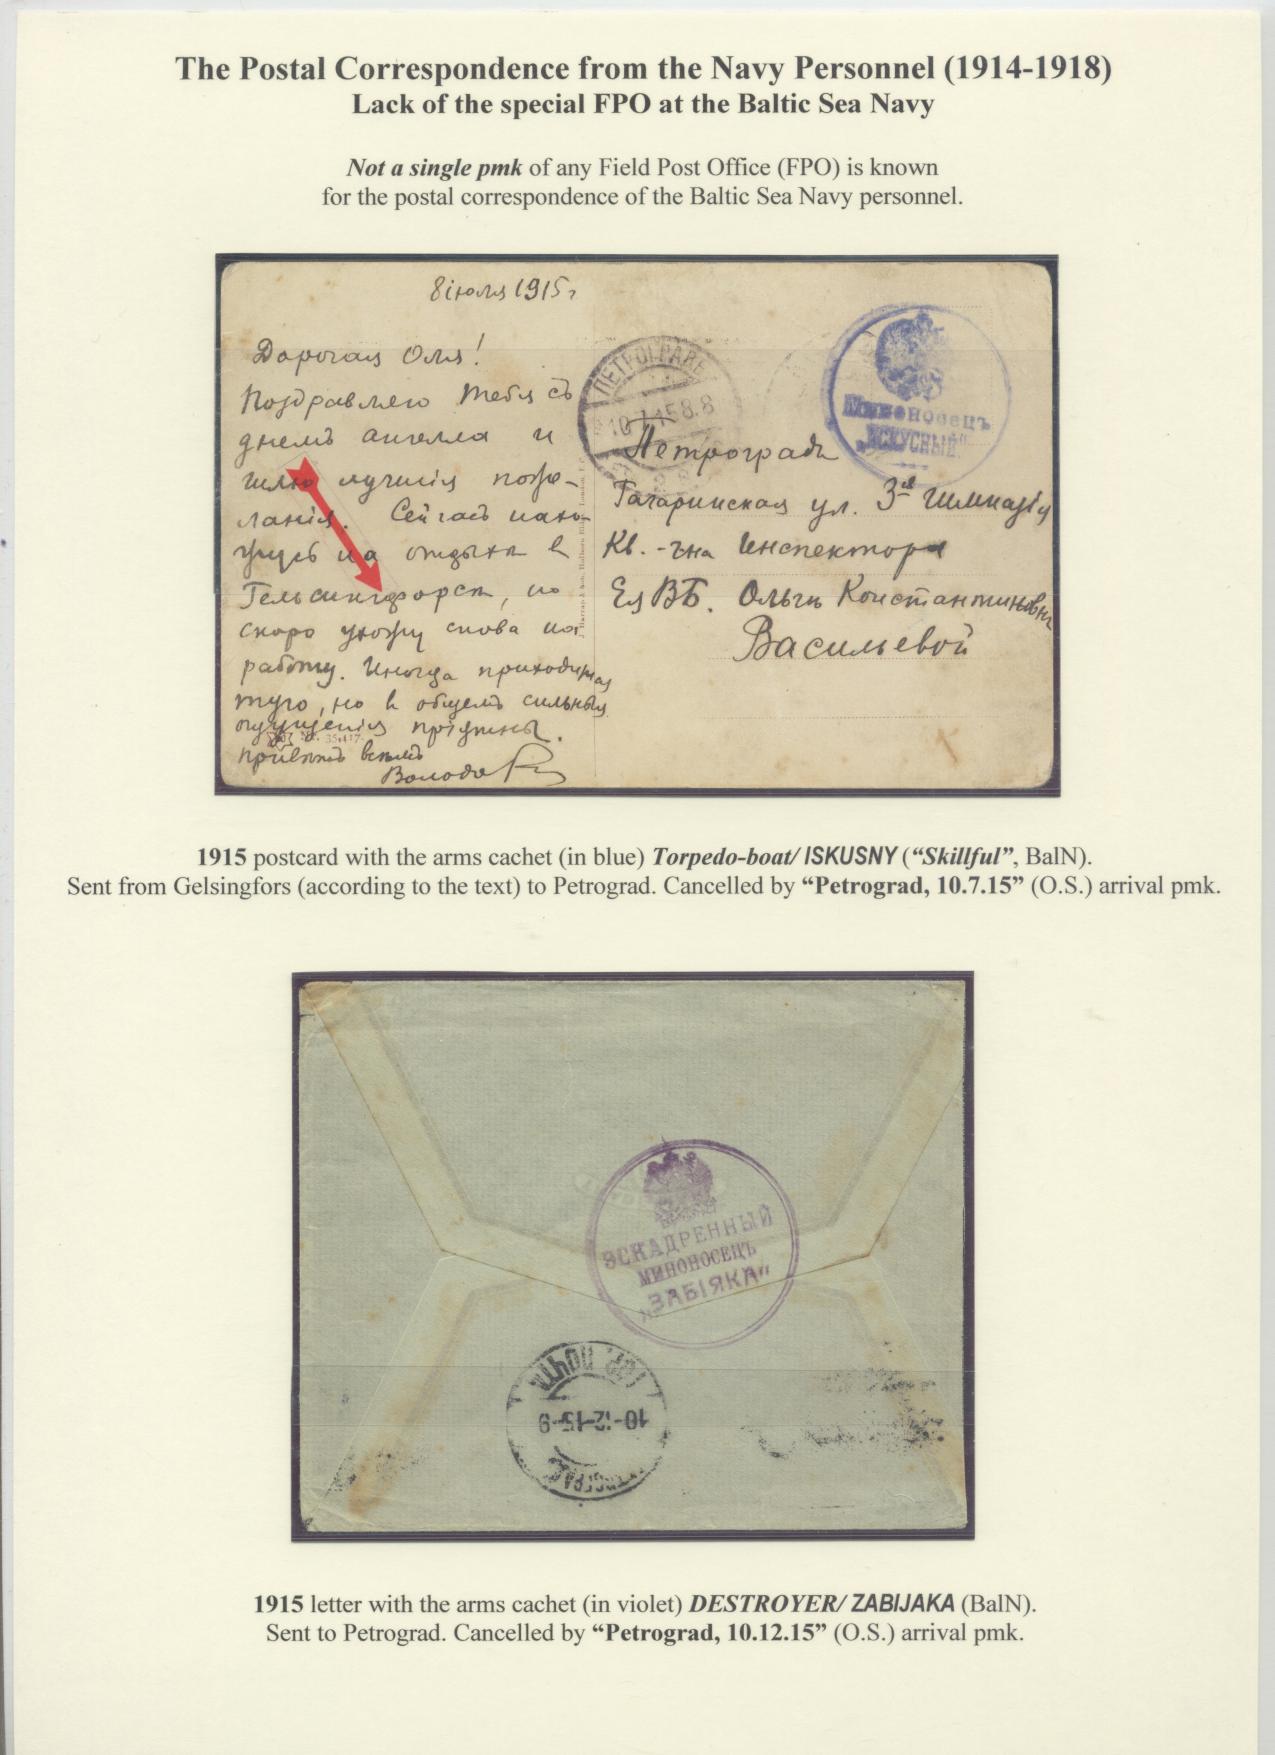 The Postal Correspondence from the Navy Personnel (1914-1918)
Lack of the special FPO at the Baltic Sea Navy
Not a single pmk of any Field Post Office (FPO) is known
for the postal correspondence of the Baltic Sea Navy personnel.
8 іюля 1915 г
Дорогая Оля!
Поздравляю тебя съ
днемъ ангела и
шлю лучшія поже-
ланія. Сейчасъ нахо-
жусь на отдыхѣ в
Гельсингфорсѣ, но
скоро ухожу снова на
работу. Иногда приходится
туго, но в общемъ сильныя
ощущенія пріятны.
Привѣтъ всѣмъ
Володя
ПЕТРОГРАДЪ
10.7.15 8.8
Миноносецъ
„ИСКУСНЫЙ“
Петроградъ
Гагаринская ул. 3-я Гимназія
Кв. Инспектора
Ея ВБ. Ольгѣ Константиновнѣ
Васильевой
1915 postcard with the arms cachet (in blue) Torpedo-boat/ ISKUSNY (“Skillful”, BalN).
Sent from Gelsingfors (according to the text) to Petrograd. Cancelled by “Petrograd, 10.7.15” (O.S.) arrival pmk.
ЭСКАДРЕННЫЙ
МИНОНОСЕЦЪ
„ЗАБІЯКА“
ГОР. ПОЧТА
10-12-15-9
1915 letter with the arms cachet (in violet) DESTROYER/ ZABIJAKA (BalN).
Sent to Petrograd. Cancelled by “Petrograd, 10.12.15” (O.S.) arrival pmk.